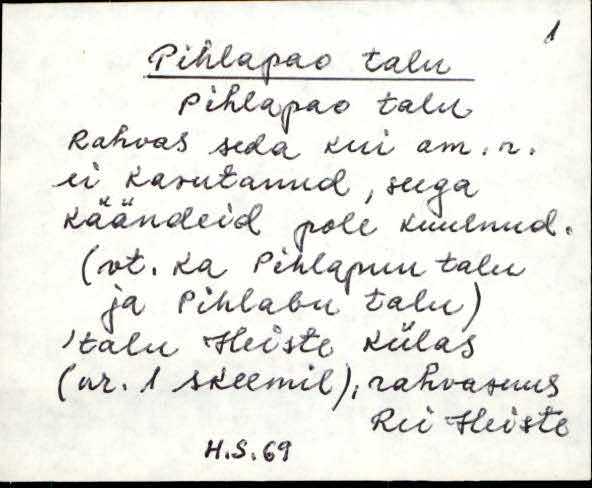 1
Pihlapao talu
Pihlapao talu
Rahvas seda kui am. n.
ei kasutanud, seega
käändeid pole kuulnud.
(vt. ka Pihlapuu talu
ja Pihlabu talu)
'talu Heiste külas
(nr. 1 skeemil), rahvasuus
Rei Heiste
H.S. 69